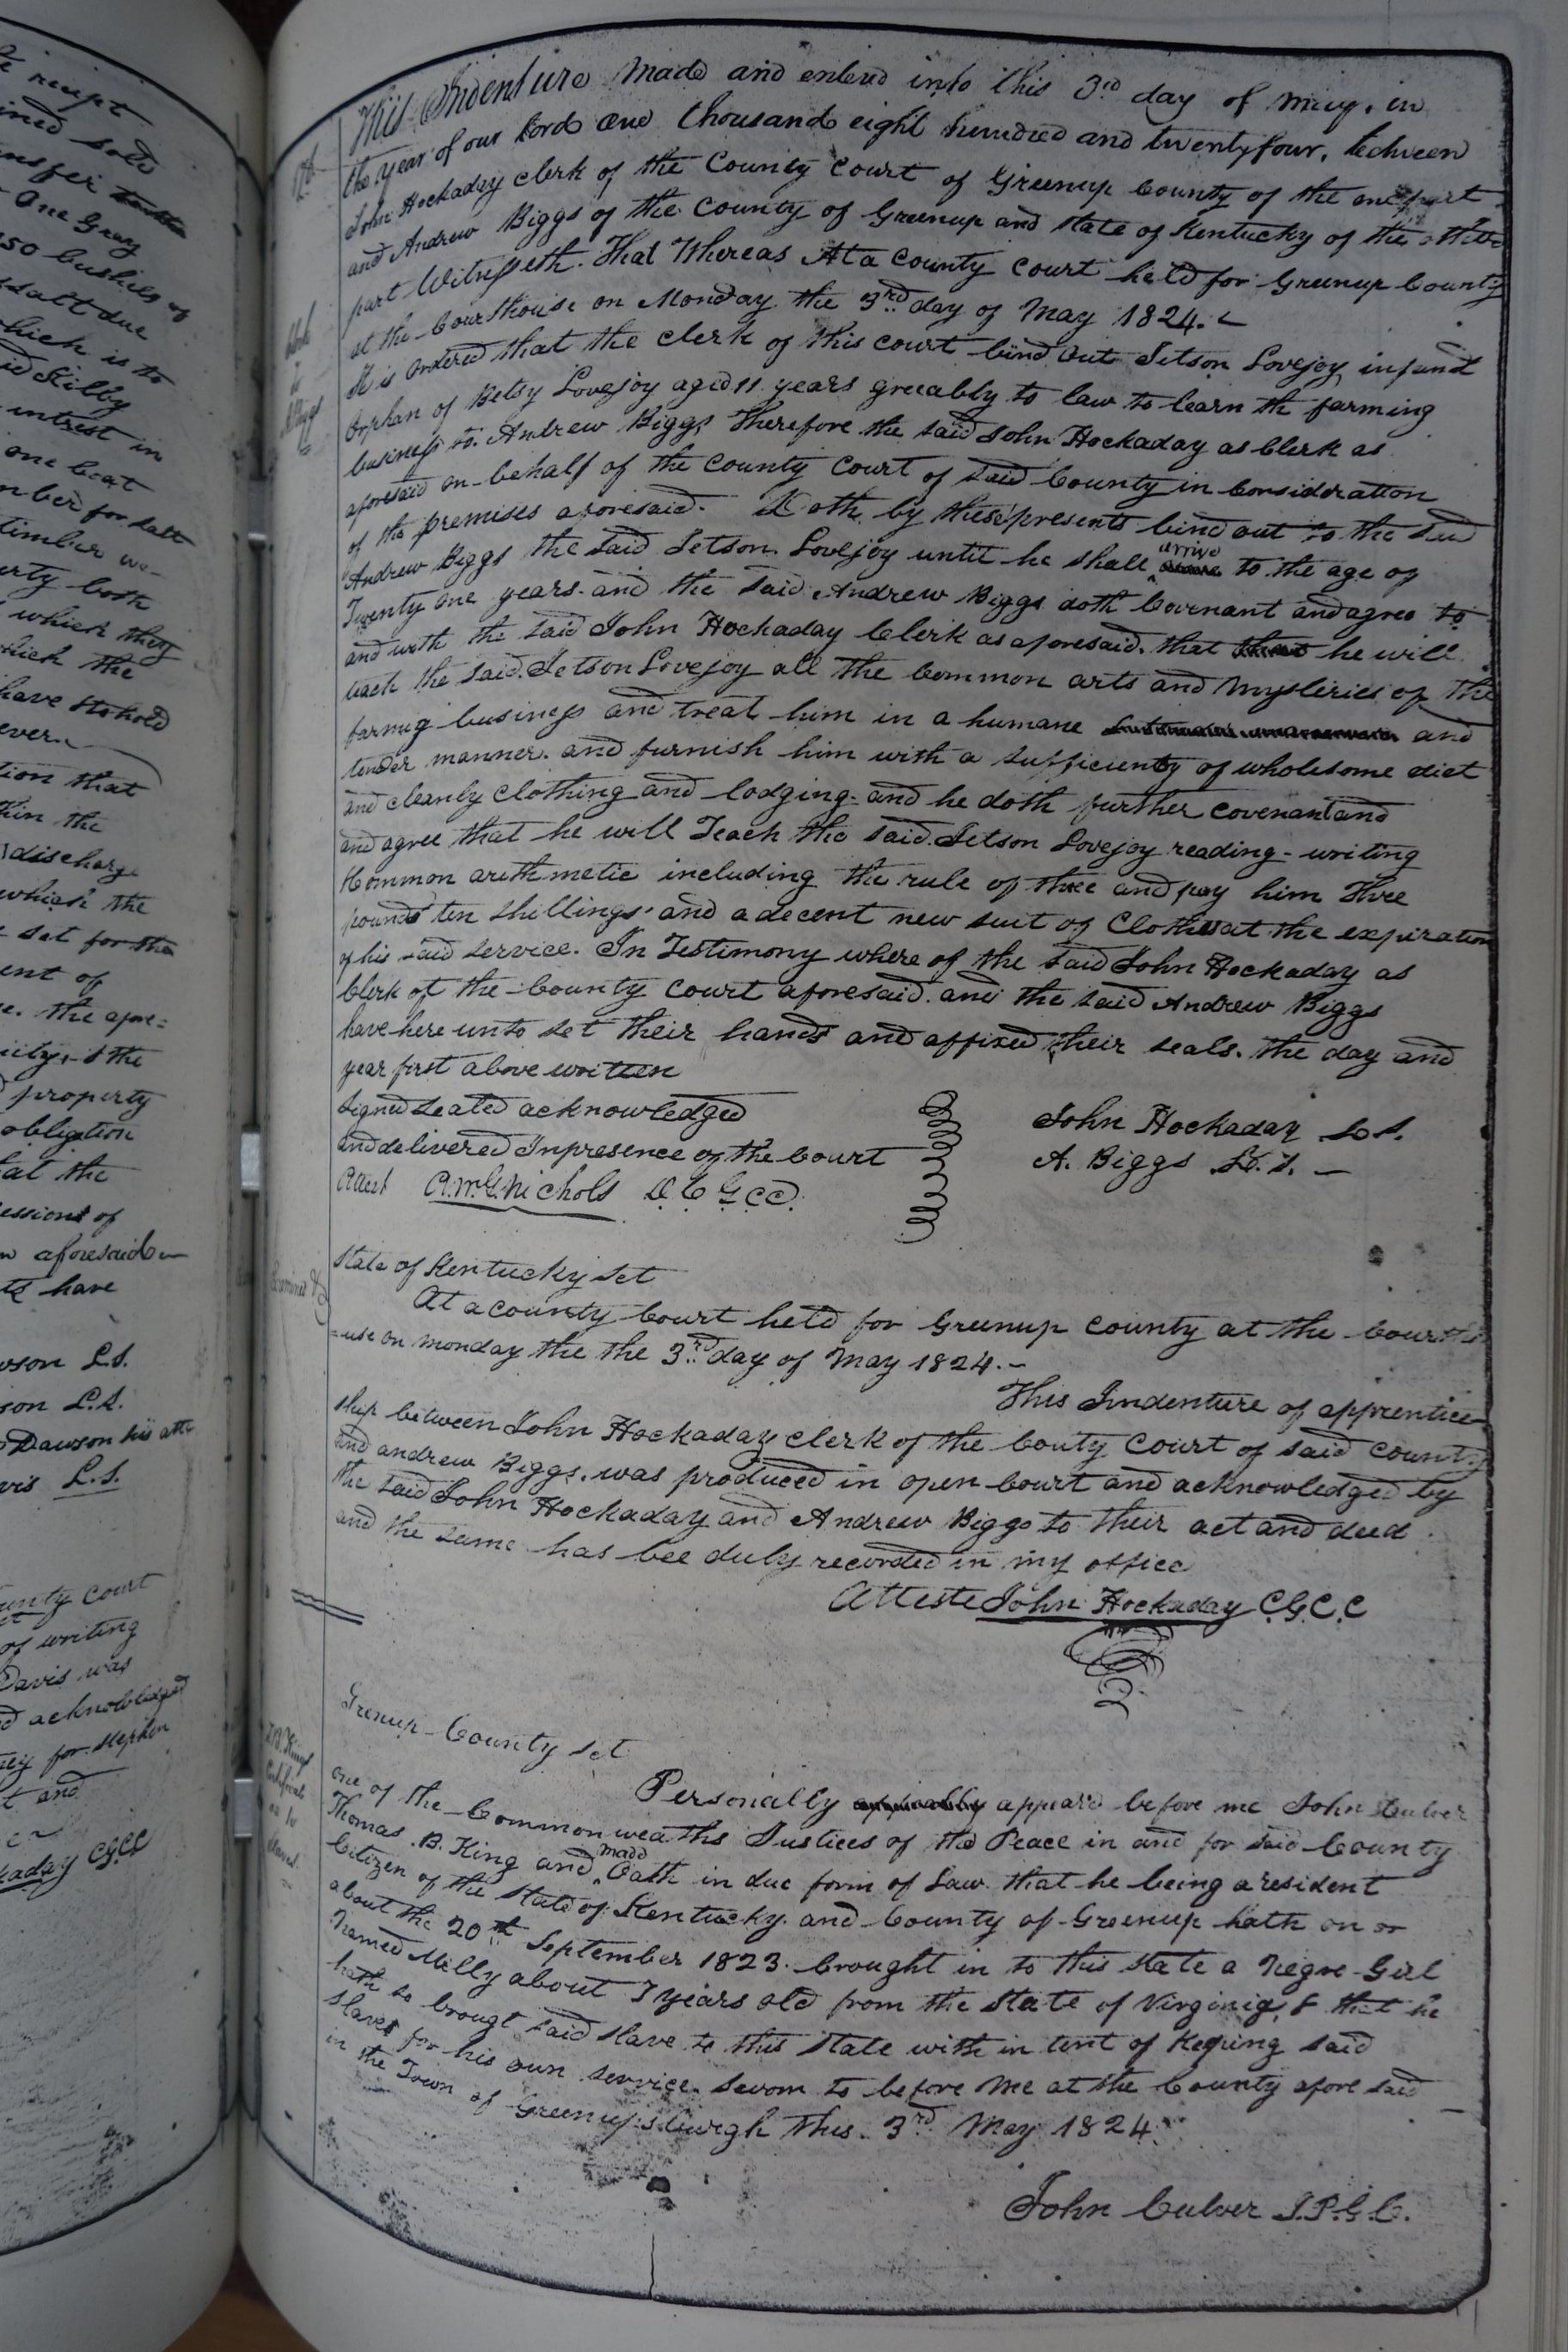 te receipt
ined sold
ansfer
One Gray
350 bushels of
salt due
which is to
id Kilby
intrest in
one boat
mber for salt
timber we-
erty both
which they
which the
have & to hold
ever.
tion that
thin the
discharg
which the
set for tha
ent of
e. the afore=
city, & the
property
obligation
at the
essions of
aforesaid
ts have
wson L.S.
son L.S.
Dawson his att
vis L.S.
ounty court
of writing
Davis was
d acknowledged
ey for Stephen
t and
kaday CGCC
This Indenture made and entered into this 3rd day of may, in
the year of our Lord One thousand eight hundred and twentyfour, between
John Hockaday clerk of the County Court of Greenup County of the one part
and Andrew Biggs of the County of Greenup and state of Kentucky of the other
part Witnesseth. That Whereas At a County Court held for Greenup County
at the Courthouse on Monday the 3rd day of May 1824.
It is Ordered that the clerk of this court bind out Jetson Lovejoy infant
Orphan of Betsy Lovejoy aged 11 years greeably to law to learn th farming
business to Andrew Biggs Therefore the said John Hockaday as Clerk as
aforesaid on behalf of the County Court of said County in Consideration
of the premises aforesaid. Doth by these presents bind out to the said
Andrew Biggs the said Jetson Lovejoy until he shall arrive to the age of
Twenty one years. and the said Andrew Biggs doth Covenant and agree to
and with the said John Hockaday Clerk as aforesaid. that he will
teach the said Jetson Lovejoy all the Common arts and mysteries of the
farmig business and treat him in a humane and
tender manner. and furnish him with a sufficienty of wholesome diet
and cleanly clothing and lodging. and he doth further covenant and
and agree that he will Teach the said Jetson Lovejoy reading - writing
Common arithmetic including the rule of three and pay him Thre
pounds ten shillings and a decent new suit of Clothes at the expiration
of his said service. In Testimony where of the said John Hockaday as
Clerk of the County Court aforesaid. and the said Andrew Biggs
have here unto set their hands and affixed their seals. the day and
year first above written
Signed Sealed acknowledged
and delivered In presence of the Court
Attest A. McG. Nichols D.C.G.C.C.
John Hockaday L.S.
A. Biggs L.S.
State of Kentucky Set
At a county Court held for Greenup County at the Courtho
=use on monday the the 3rd day of May 1824.-
This Indenture of apprentice
ship between John Hockaday clerk of the Couty Court of said County
and andrew Biggs. was produced in open Court and acknowledged by
the said John Hockaday and Andrew Biggs to their act and deed
and the same has bee duly recorded in my office
Atteste John Hockaday C.G.C.C
T.B. King
Certificate
as to
slaves
Grenup County Set
Personally appeard before me John Culver
one of the Commonweaths Justices of the Peace in and for said County
Thomas .B. King and made Oath in due form of Law that he being a resident
Citizen of the State of Kentucky. and County of Greenup hath on or
about the 20th September 1823. brought in to this state a Negro Girl
Named Milly about 7 years old from the State of Virginia, & that he
hath so brougt said slave to this state with in tent of Keping said
Slaves for his own service. Sworn to before me at the County afore said
in the Town of Greenupsburgh this 3rd May 1824.
John Culver J.P.G.C.